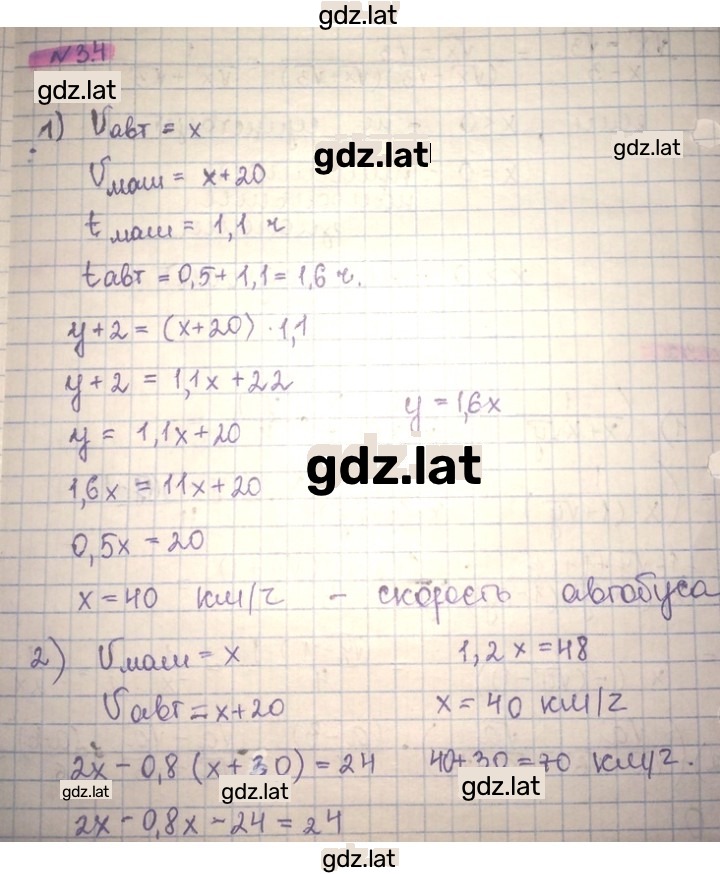 gdz.lat
N 34
gdz.lat
1) Vавт = x
gdz.lat
gdz.lat
Vмаш = x+20
t маш = 1,1 ч
tавт = 0,5 + 1,1 = 1,6 ч.
y+2 = (x+20) · 1,1
y+2 = 1,1x +22
y = 1,6x
y = 1,1x+20
gdz.lat
1,6x = 11x+20
0,5x = 20
x = 40 км/ч - скорость автобуса
2) Vмаш = x
1,2x = 48
Vавт = x+20
x = 40 км/ч
2x - 0,8 (x+30) = 24
40+30 = 70 км/ч.
gdz.lat
gdz.lat
gdz.lat
2x - 0,8x - 24 = 24
gdz.lat